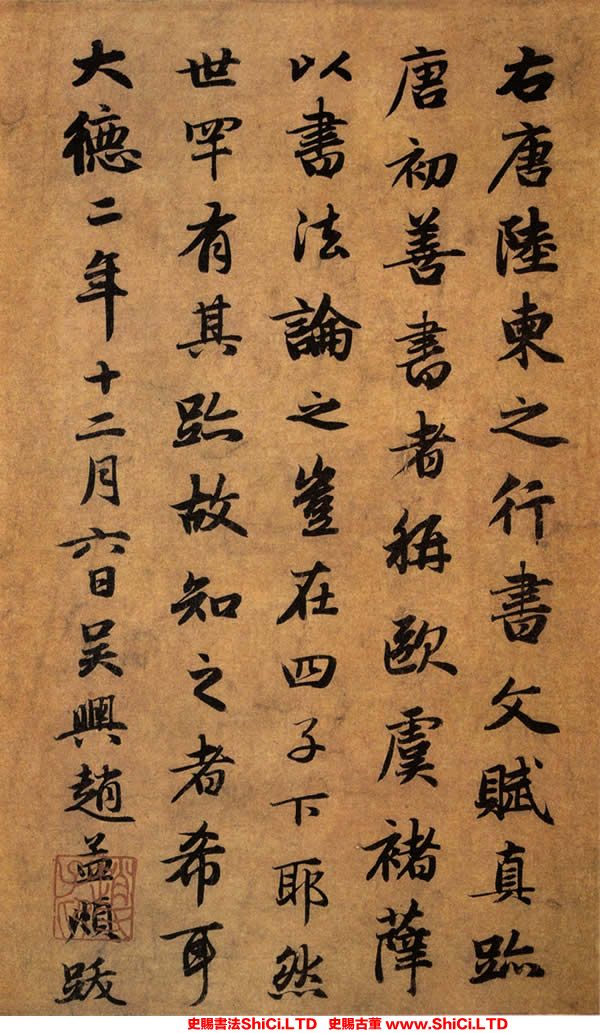 右唐陸柬之行書文賦真跡
唐初善書者稱歐虞褚薛
以書法論之豈在四子下耶然
世罕有其跡故知之者希耳
大德二年十二月六日吳興趙孟頫跋
史賜書法ShiCi.LTD 史賜古董 www.ShiCi.LTD